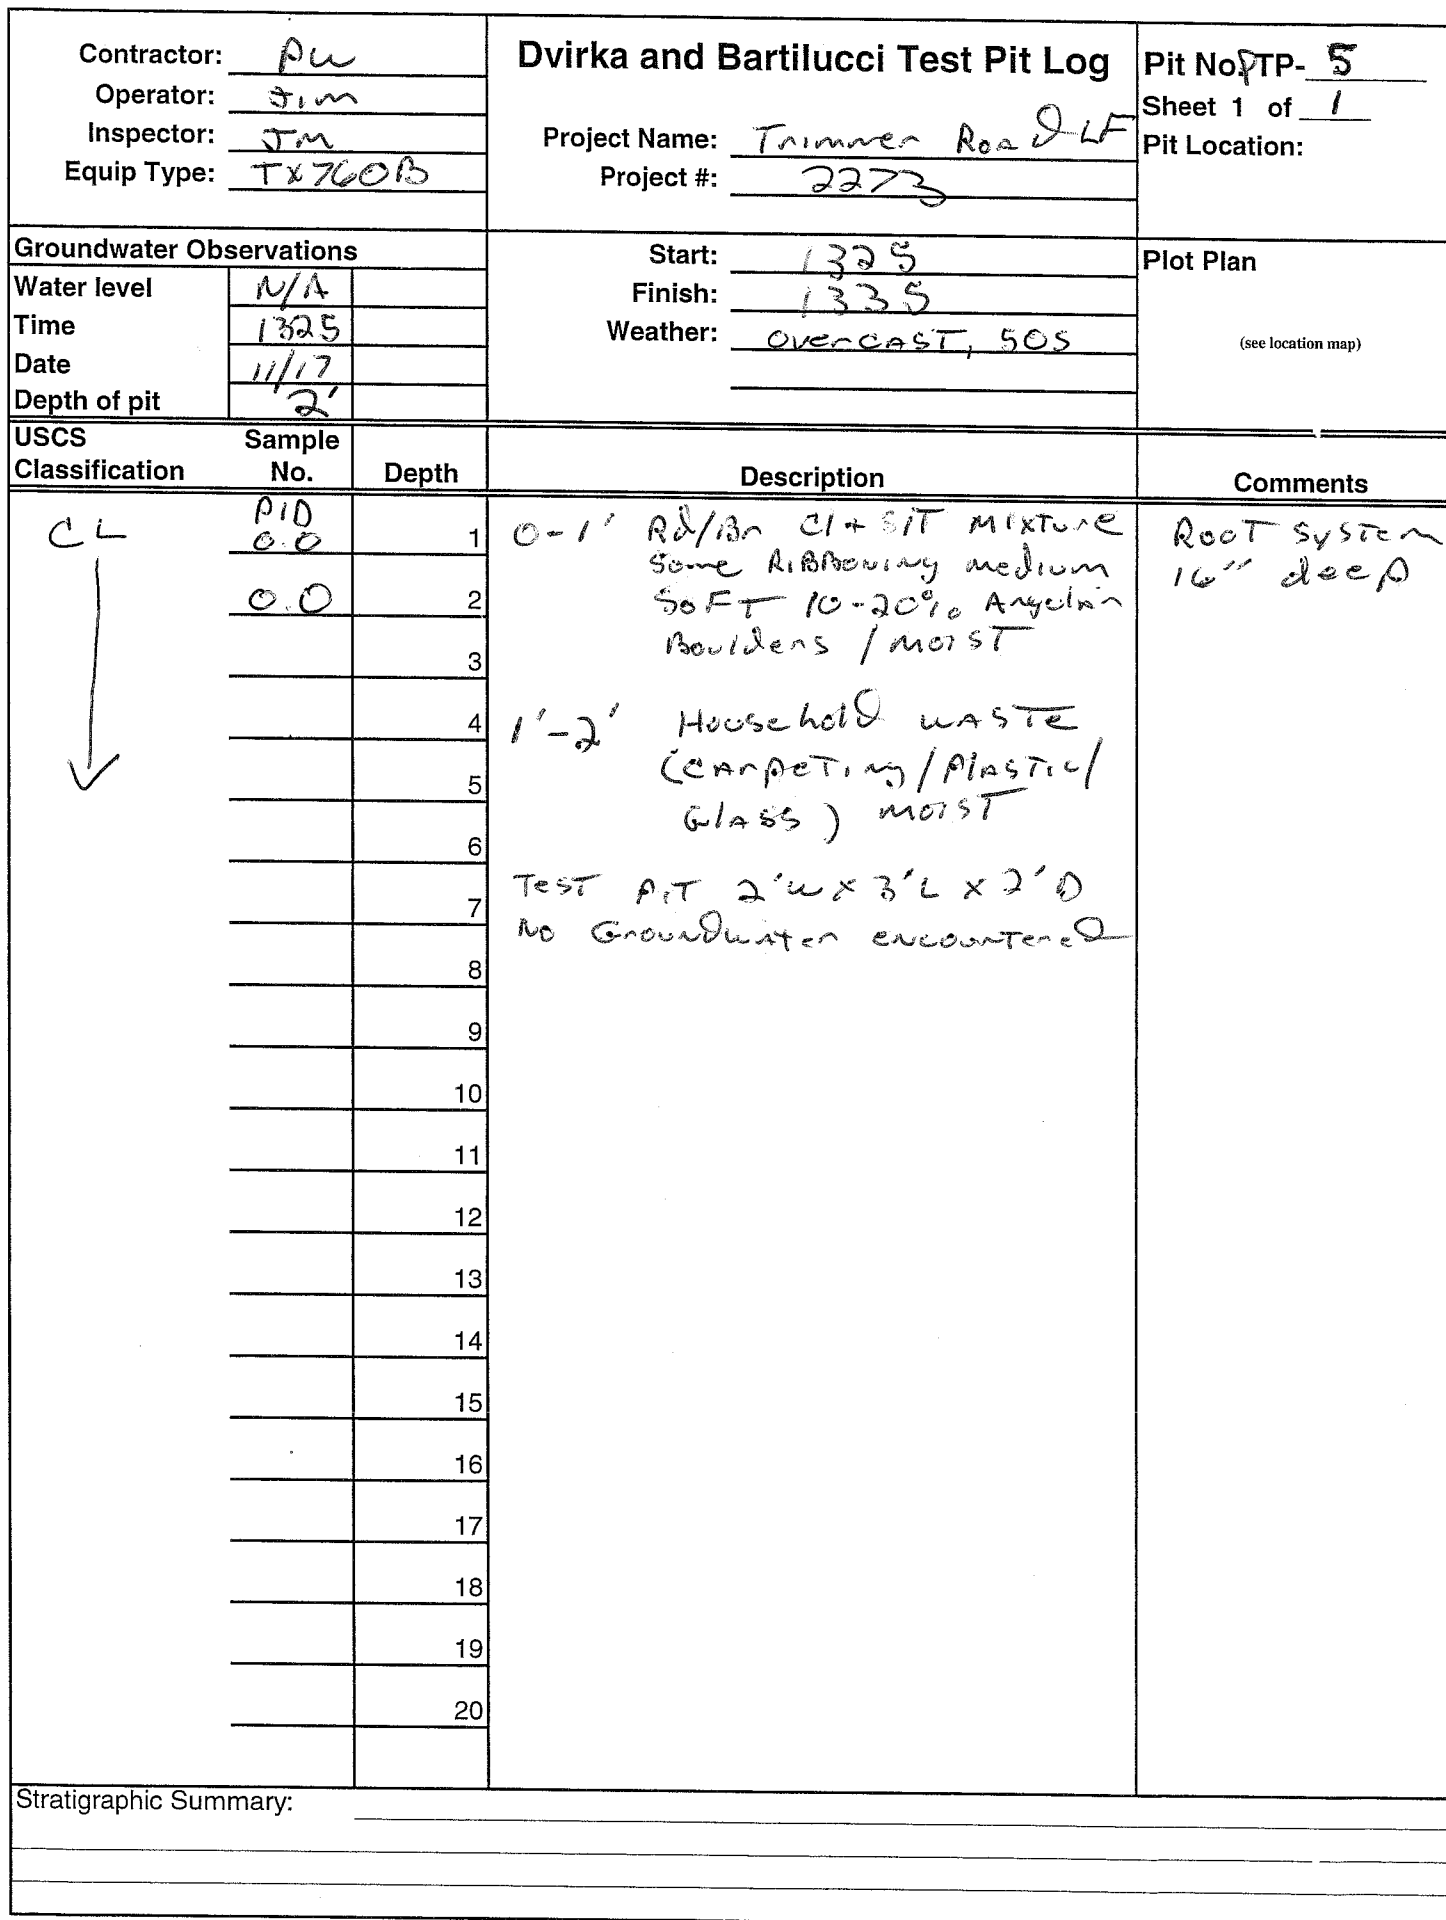 Contractor: PW
Operator: Jim
Inspector: JM
Equip Type: TX760B
Dvirka and Bartilucci Test Pit Log
Project Name: Trimmer Road LF
Project #: 2273
Pit No. PTP- 5
Sheet 1 of 1
Pit Location:
Groundwater Observations
Water level N/A
Time 1325
Date 11/17
Depth of pit 2'
Start: 1325
Finish: 1335
Weather: Overcast, 50s
Plot Plan
(see location map)
USCS Classification
Sample No.
Depth
Description
Comments
CL
PID
0.0
0.0
1
2
3
4
5
6
7
8
9
10
11
12
13
14
15
16
17
18
19
20
0-1' Rd/Bn Cl + SiT MIXTURE
Some RIBBONING medium
SOFT 10-20% Angular
Boulders / MOIST
1'-2' Household WASTE
(CARPETING/PLASTIC/
GLASS) MOIST
TEST PIT 2'W x 3'L x 2'D
NO Groundwater encountered
ROOT SYSTEM
16" deep
Stratigraphic Summary: